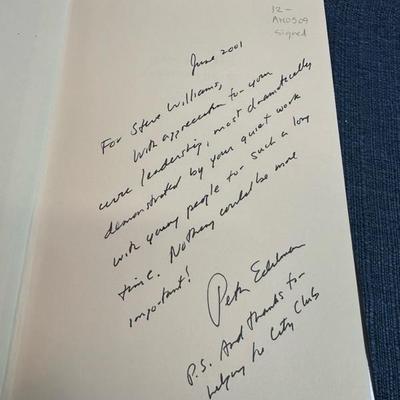 12-
AM0509
signed
June 2001
For Steve Williams,
With appreciation to your
civic leadership, most dramatically
demonstrated by your quiet work
with young people for such a long
time. Nothing could be more
important!
Peter Edelman
P.S. And thanks for
helping the City Club